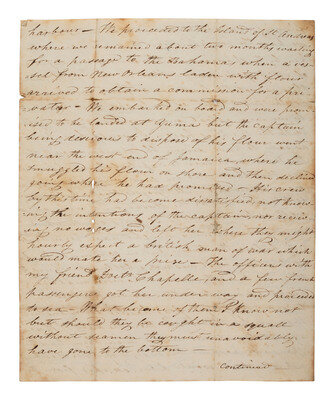 harbour — We proceeded to the Island of St Andrews
where we remained about two months waiting
for a passage to the Bahamas when a ves-
sel from New Orleans laden with flour
arrived to obtain a commission for a pri-
vateer — We embarked on board and were prom-
ised to be landed at but the captain
being desirous to dispose of his flour went
near the west end of Jamaica, where he
smuggled his flour on shore and then declined
going where he had promised — His crew
by this time had become dissatisfied not know-
ing the intentions of the captain, nor receiv-
ing no wages and left her where they might
hourly expect a british man of war which
would make her a prize — the officers with
my friend Chapelle, and a few french
passengers got her under way and proceeded
to sea — What became of them I know not
but should they be caught in a squall
without seamen they must unavoidably
have gone to the bottom —
Continued